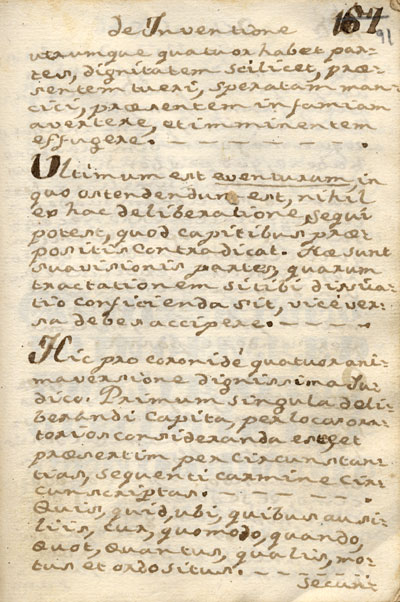 de Inventione 187
91
utrumque quatuor habet par-
tes, dignitatem scilicet, præ-
sentem tueri, speratam nan-
cici, præsentem infamiam
avertere, et imminentem
effugere. - - - - - - -
Ultimum est eventurum, in
quo ostendendum est, nihil
ex hac deliberatione, sequi
potest, quod capitibus præ-
positis contradicat. Hæ sunt
suavisionis partes, quarum
tractationem si tibi dissua-
tio conficienda sit, vice ver-
sa debes accipere. - - - - -
Hic pro coronide quatuor ani-
maversione dignissima Ju-
dico. Primum singula deli-
berandi Capita, per locos ora-
torios consideranda esse, et
præsertim per circunstan-
tias, sequenti carmine cir-
cunscriptas. - - - - - -
Quis, quid, ubi, quibus ausi-
liis, cur, quomodo, quando,
Quot, Quantus, qualis, mo-
tus et ordo situs. - - - - -
Secun-